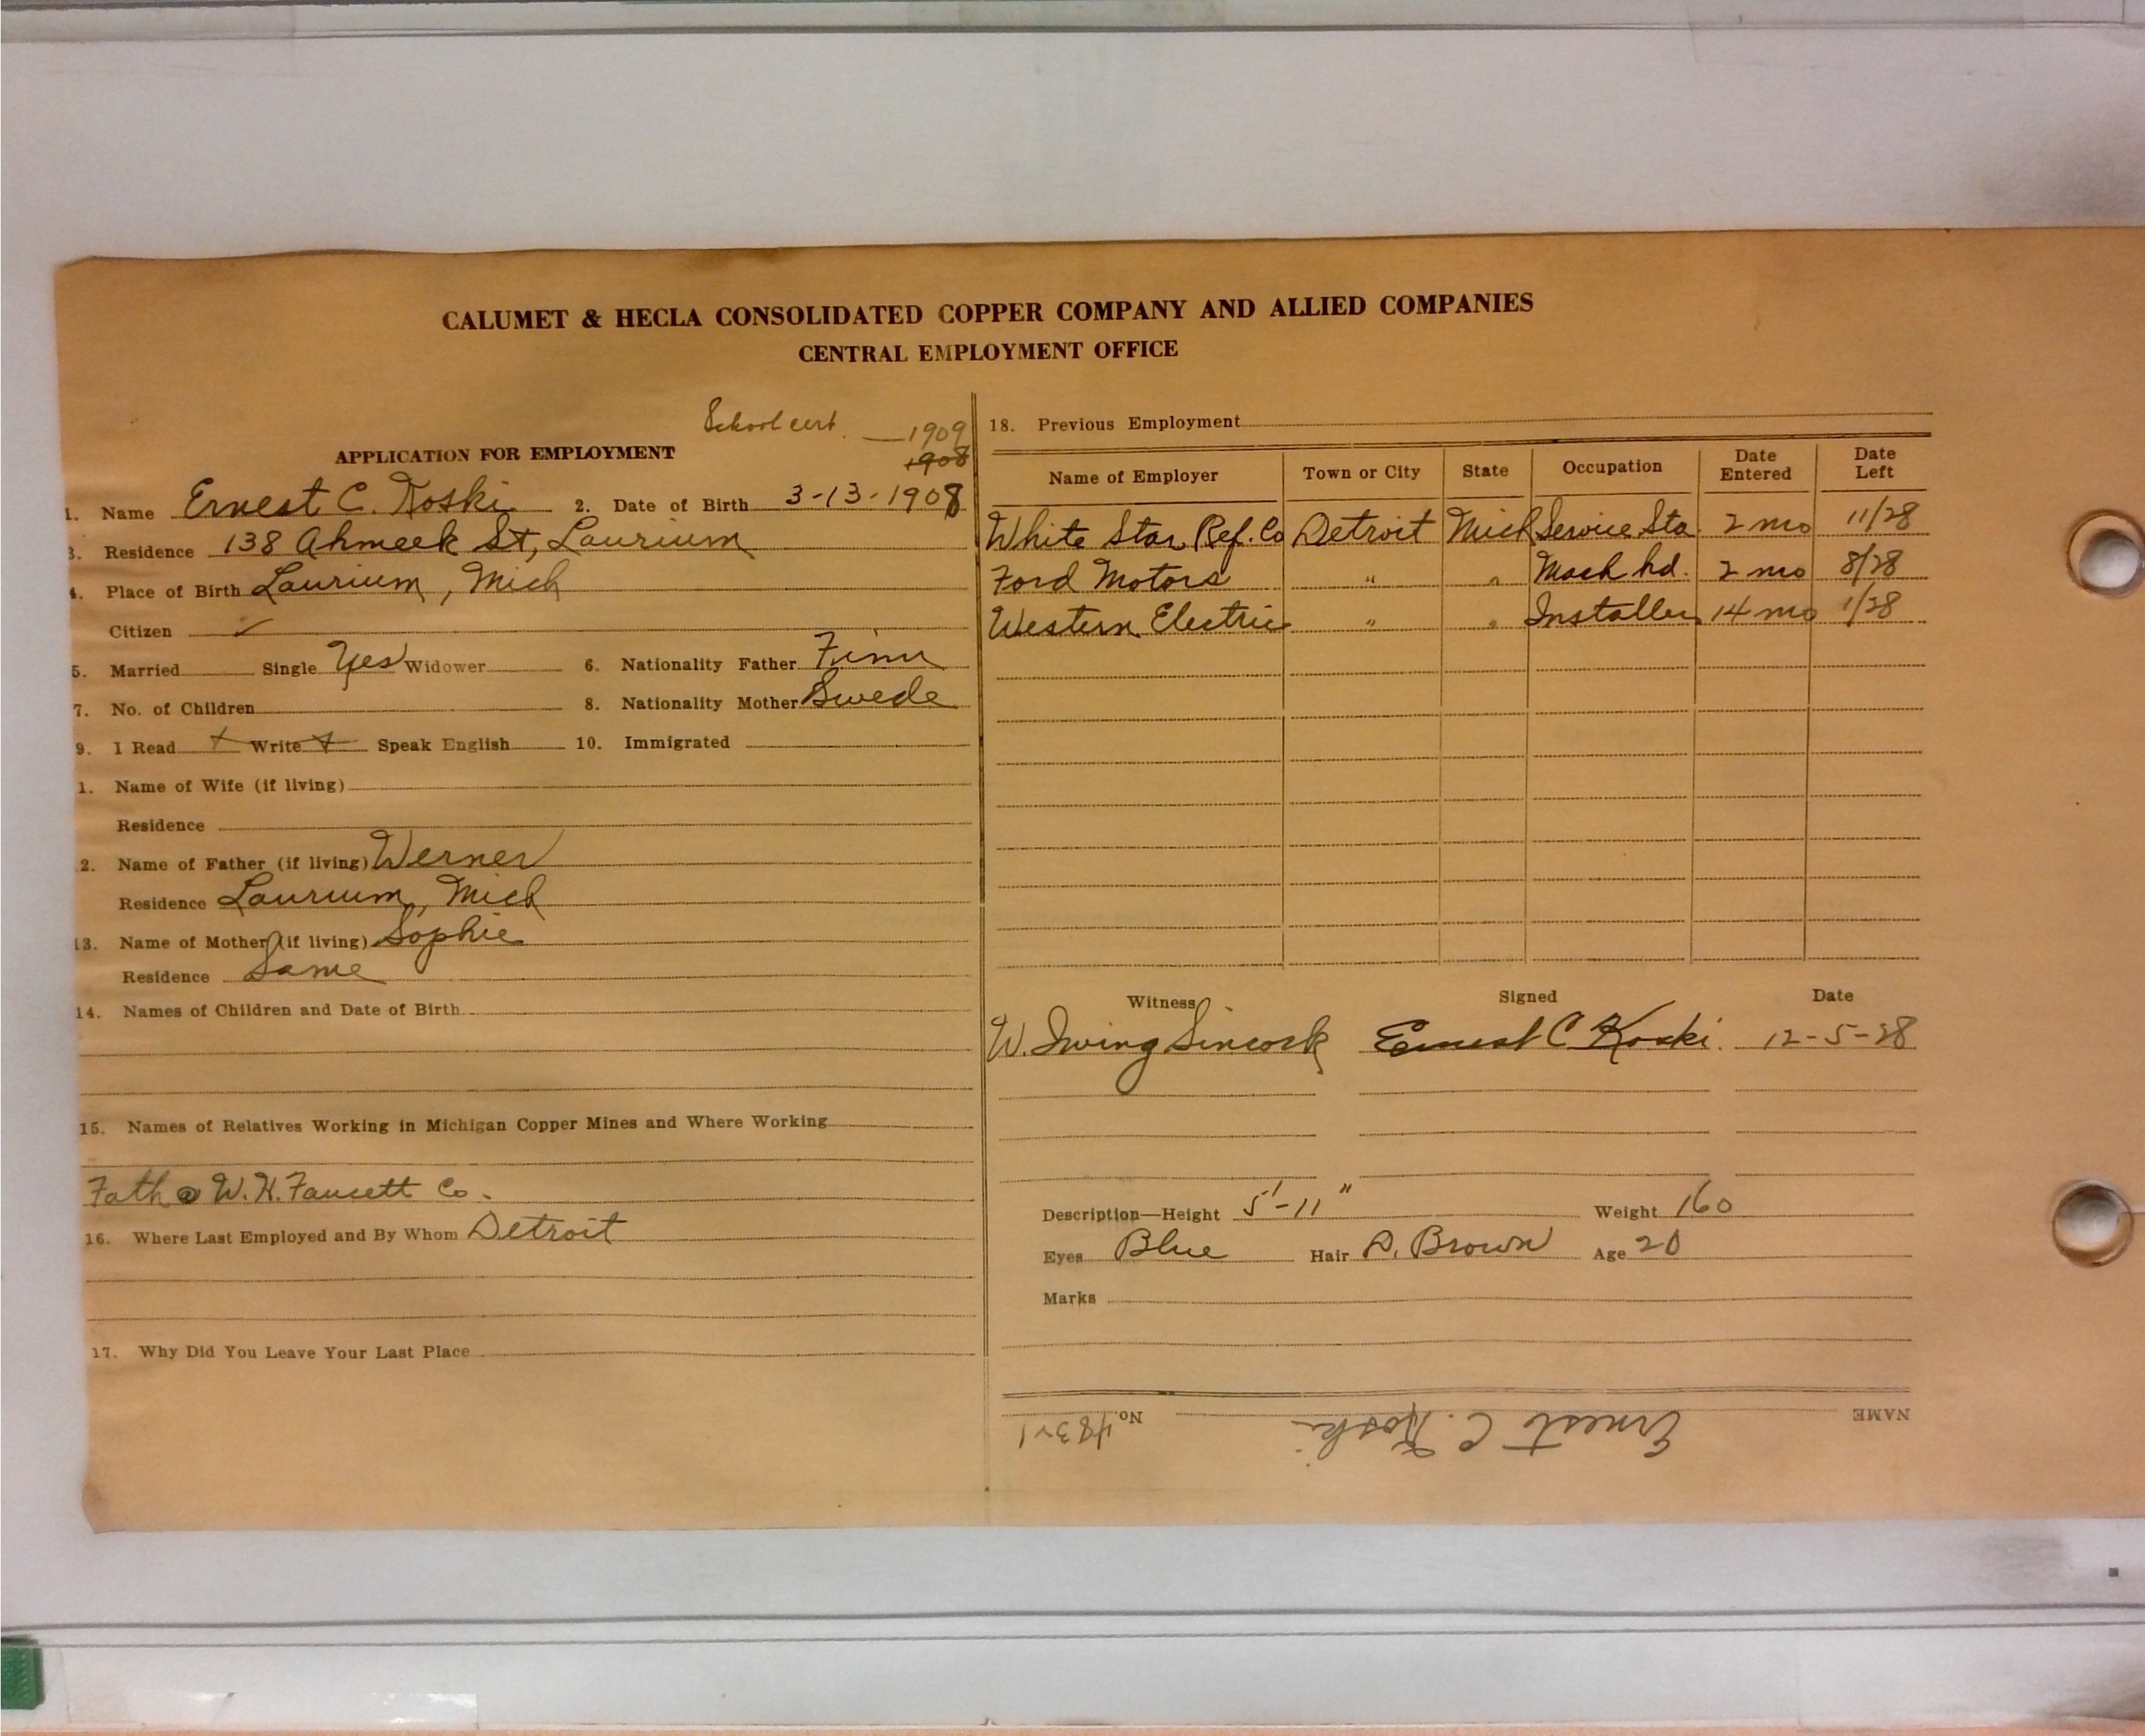 CALUMET & HECLA CONSOLIDATED COPPER COMPANY AND ALLIED COMPANIES
CENTRAL EMPLOYMENT OFFICE
School cert. — 1909
1908
APPLICATION FOR EMPLOYMENT
1. Name Ernest C. Koski 2. Date of Birth 3-13-1908
3. Residence 138 Ahmeek St, Laurium
4. Place of Birth Laurium, Mich
Citizen ✓
5. Married Single Yes Widower 6. Nationality Father Finn
7. No. of Children 8. Nationality Mother Swede
9. I Read + Write + Speak English 10. Immigrated
1. Name of Wife (if living)
Residence
2. Name of Father (if living) Werner
Residence Laurium, Mich
13. Name of Mother (if living) Sophie
Residence Same
14. Names of Children and Date of Birth
15. Names of Relatives Working in Michigan Copper Mines and Where Working
Fath @ W. H. Faucett Co.
16. Where Last Employed and By Whom Detroit
17. Why Did You Leave Your Last Place
18. Previous Employment
Name of Employer Town or City State Occupation Date Entered Date Left
White Star Ref. Co Detroit Mich Service Sta. 2 mo 11/28
Ford Motors " " Mach hd. 2 mo 8/28
Western Electric " " Installer 14 mo 1/28
Witness Signed Date
W. Irving Sincock Ernest C Koski. 12-5-28
Description—Height 5'-11" Weight 160
Eyes Blue Hair D. Brown Age 20
Marks
NAME Ernest C. Koski No.